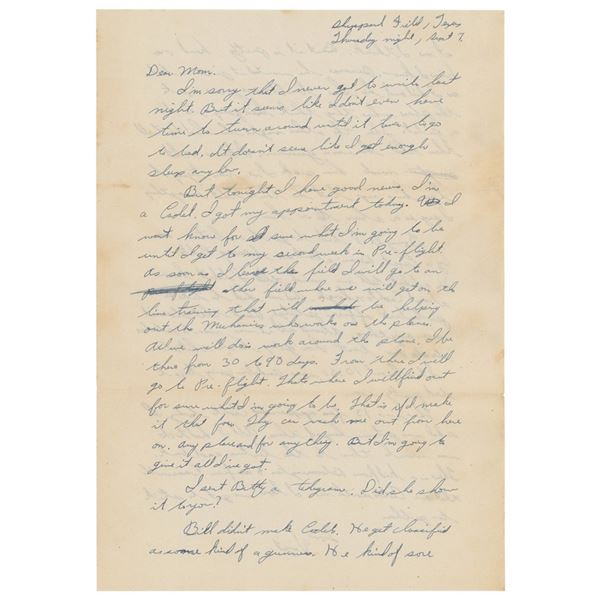 Sheppard Field, Texas
Thursday night, Sept 7.
Dear Mom.
I'm sorry that I never got to write last
night. But it seems like I don't ever have
time to turn around until it time to go
to bed. It doesn't seem like I get enough
sleep anyhow.
But tonight I have good news. I'm
a Cadet. I got my appointment today. I
wont know for sure what I'm going to be
until I get to my second week in Pre-flight.
As soon as I leave this field I will go to an
other field where we will get on the
line training that will be helping
out the Mechanics who works on the planes.
All we will do is work around the plane. I be
there from 30 to 90 days. From there I will
go to Pre-flight. Thats where I will find out
for sure what I'm going to be. That is if I'd make
it that far. They can wash me out from here
on. Any place and for any thing. But I'm going to
give it all I've got.
I sent Betty a telegram. Did she show
it to you?
Bill didn't make Cadet. He get classified
as some kind of a gunner. He kind of sore